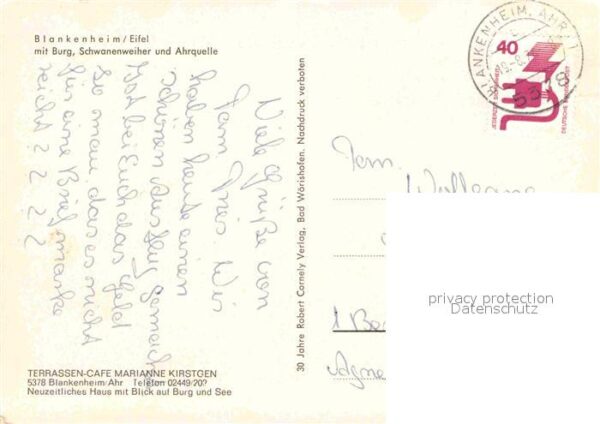 Blankenheim/Eifel
mit Burg, Schwanenweiher und Ahrquelle
Viele Grüße von
Fam. Wir
haben heute einen
schönen Ausflug gemacht
Ist bei Euch das Geld
so mau, das es nicht
für eine Briefmarke
reicht ? ? ? ?
TERRASSEN-CAFE MARIANNE KIRSTGEN
5378 Blankenheim/Ahr Telefon 02449/20?
Neuzeitliches Haus mit Blick auf Burg und See
30 Jahre Robert Cornely Verlag, Bad Wörishofen. Nachdruck verboten
BLANKENHEIM, AHR
5378
40
JEDERZEIT SICHERHEIT
DEUTSCHE BUNDESPOST
Fam.
Wolfgang
1 Be
Agne
privacy protection
Datenschutz